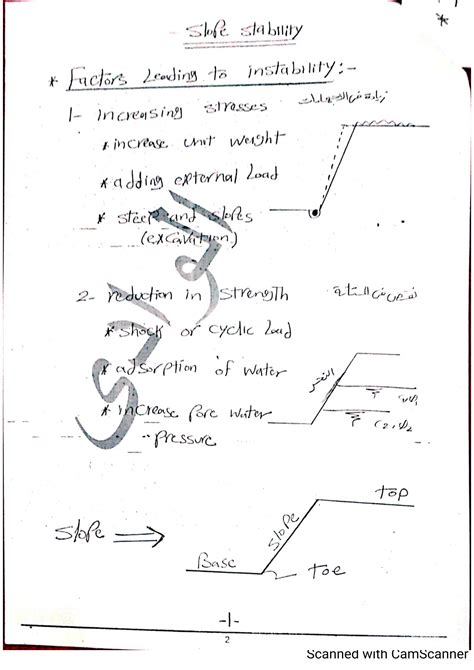 Slope stability
* Factors Leading to instability:-
1- increasing stresses زيادة في الاجهادات
* increase unit weight
* adding external Load
* steep and slopes
(excavation)
2- reduction in strength نقص في المتانة
* shock or cyclic Load
* adsorption of water
* increase Pore water
pressure
top
Slope ⇒
slope
Base
toe
-1-
2
Scanned with CamScanner